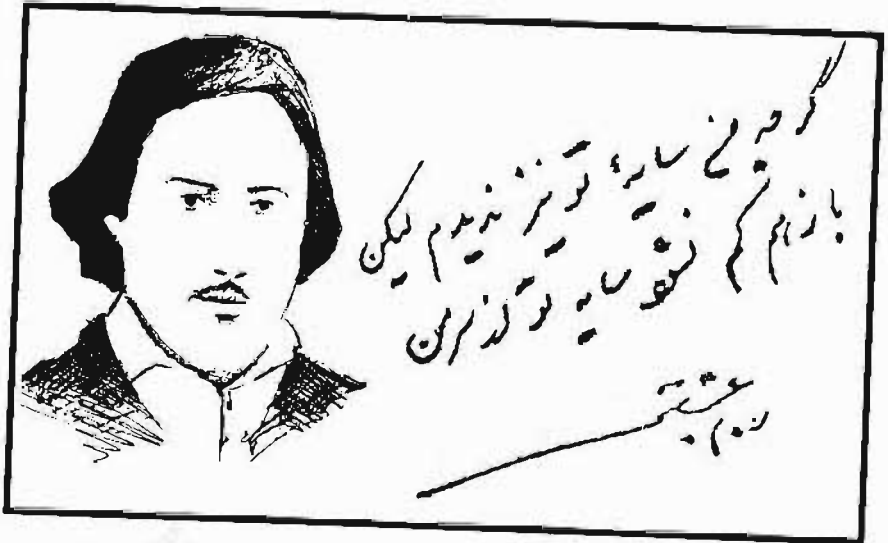 گرچه من سایهٔ تو نیز ندیدم لیکن
بازهم کم نشود سایه تو از سر من
عشقی